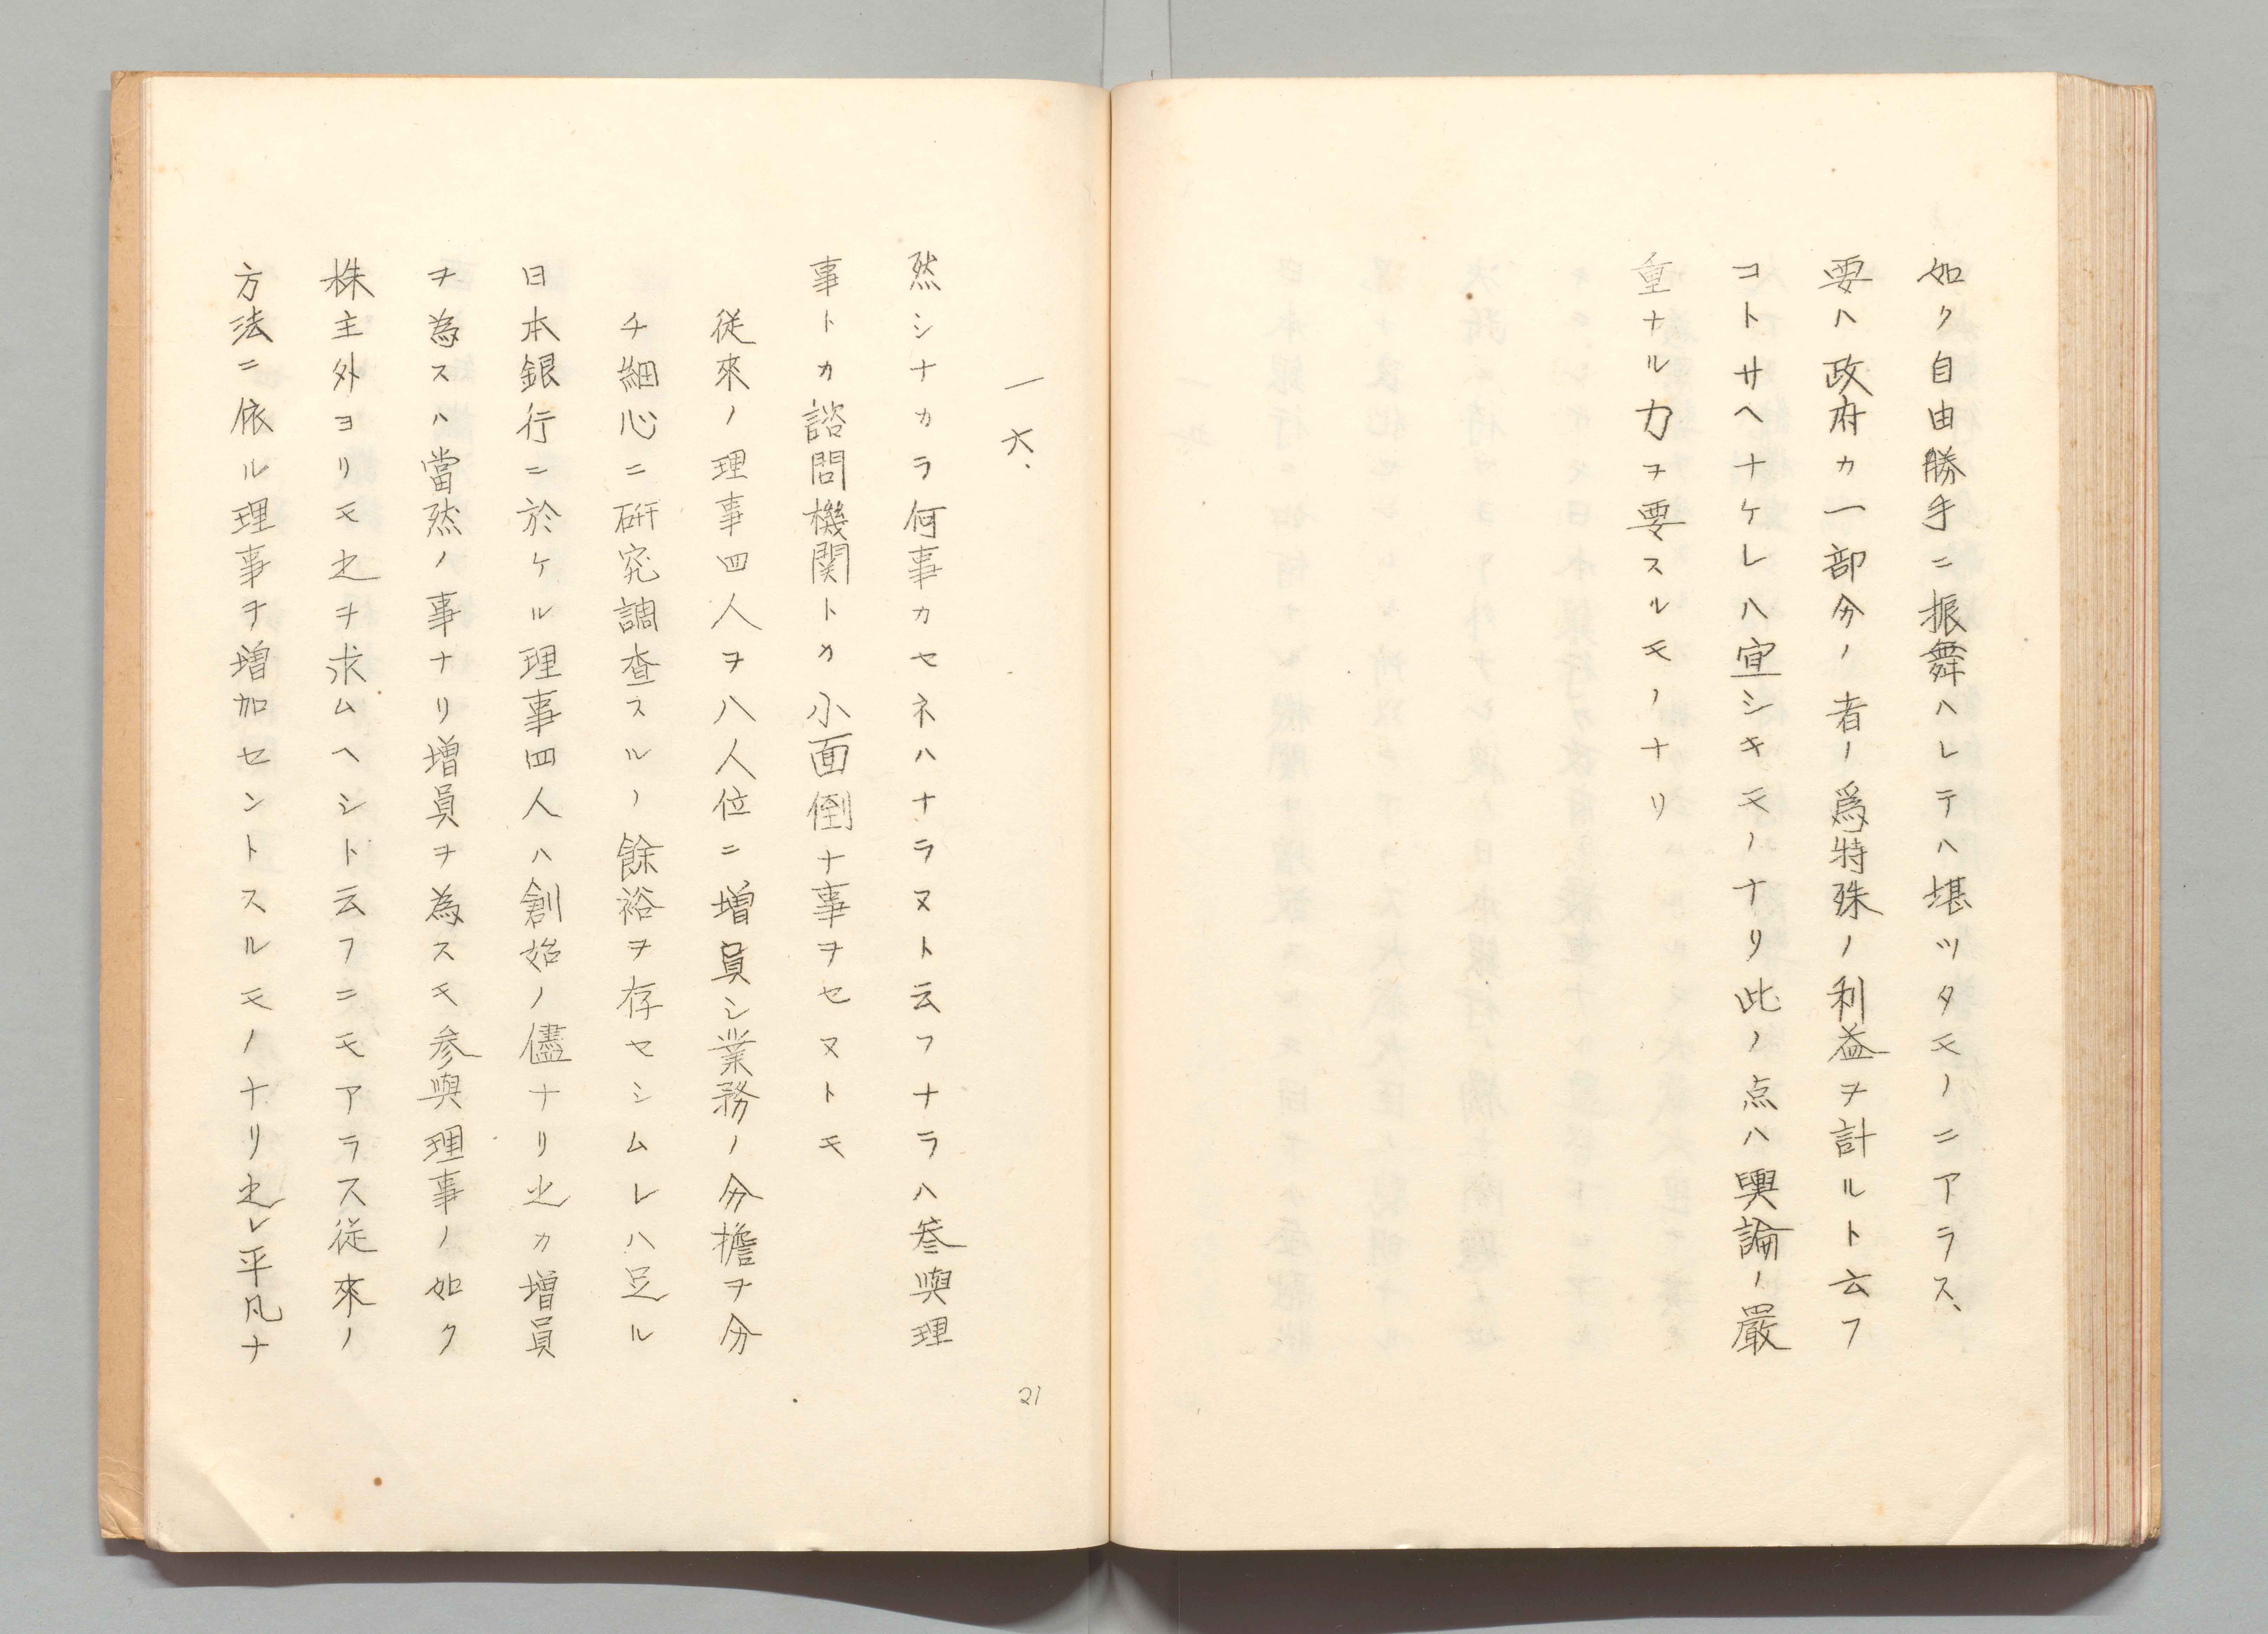 如ク自由勝手ニ振舞ハレテハ堪ツタモノニアラス、
要ハ政府カ一部分ノ者ノ爲特殊ノ利益ヲ計ルト云フ
コトサヘナケレハ宜シキモノナリ此ノ点ハ輿論ノ嚴
重ナル力ヲ要スルモノナリ
一六.
然シナカラ何事カセネハナラヌト云フナラハ參與理
事トカ諮問機関トカ小面倒ナ事ヲセヌトモ
従來ノ理事四人ヲ八人位ニ増員シ業務ノ分擔ヲ分
チ細心ニ研究調査スルノ餘裕ヲ存セシムレハ足ル
日本銀行ニ於ケル理事四人ハ創始ノ儘ナリ之カ増員
ヲ為スハ當然ノ事ナリ増員ヲ為スモ参與理事ノ如ク
株主外ヨリモ之ヲ求ムヘシト云フニモアラス従來ノ
方法ニ依ル理事ヲ増加セントスルモノナリ之レ平凡ナ
21